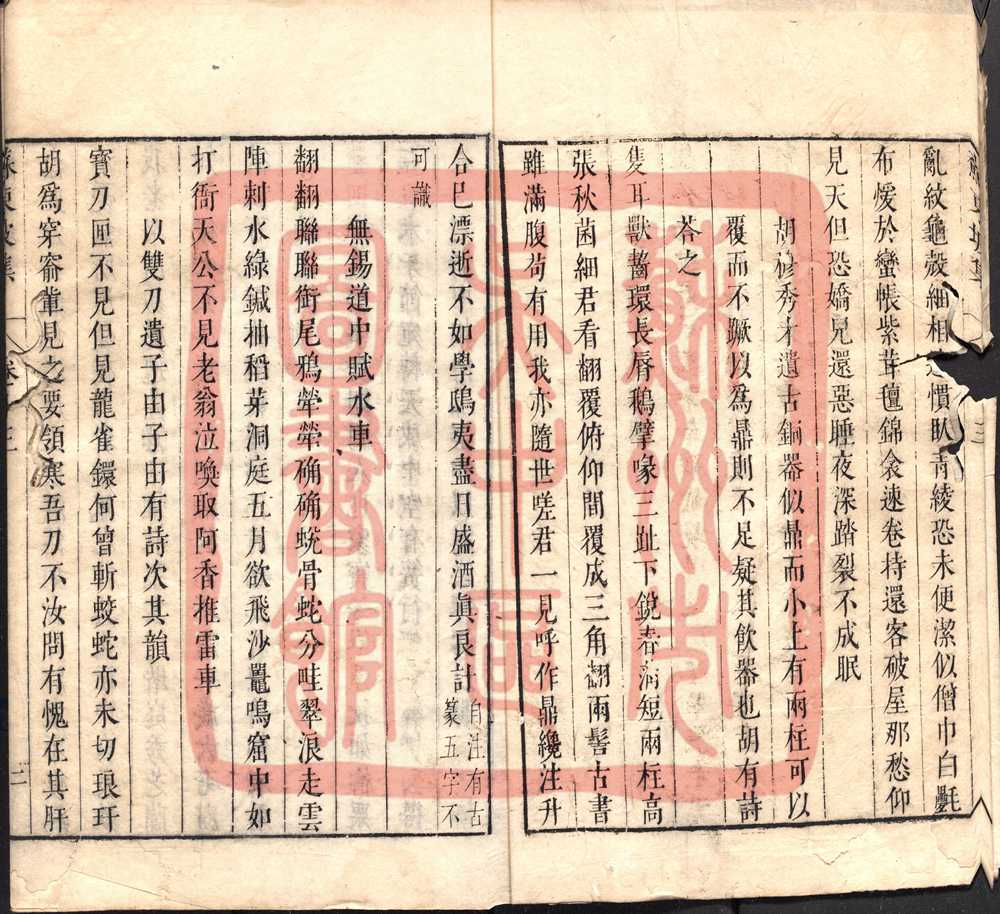 亂紋龜殼細相連慣臥青綾恐未便潔似僧巾白㲲
布煖於蠻帳紫茸氊錦衾速卷持還客破屋那愁仰
見天但恐嬌兒還惡睡夜深踏裂不成眠
胡穆秀才遺古銅器似鼎而小上有兩柱可以
覆而不蹶以爲鼎則不足疑其飲器也胡有詩
荅之
隻耳獸齧環長脣鵝擘喙三趾下銳春蒲短兩柱高
張秋菌細君看翻覆俯仰間覆成三角翻兩髻古書
雖滿腹苟有用我亦隨世嗟君一見呼作鼎纔注升
合已漂逝不如學鴟夷盡日盛酒眞良計 自注有古篆五字不
可識
無錫道中賦水車
翻翻聯聯銜尾鴉犖犖确确蛻骨蛇分畦翠浪走雲
陣刺水綠鍼抽稻芽洞庭五月欲飛沙鼉鳴窟中如
打衙天公不見老翁泣喚取阿香推雷車
以雙刀遺子由子由有詩次其韻
寶刀匣不見但見龍雀鐶何曾斬蛟蛇亦未切琅玕
胡爲穿窬輩見之要領寒吾刀不汝問有愧在其肝
卷三
二
蘇州大中
圖書館